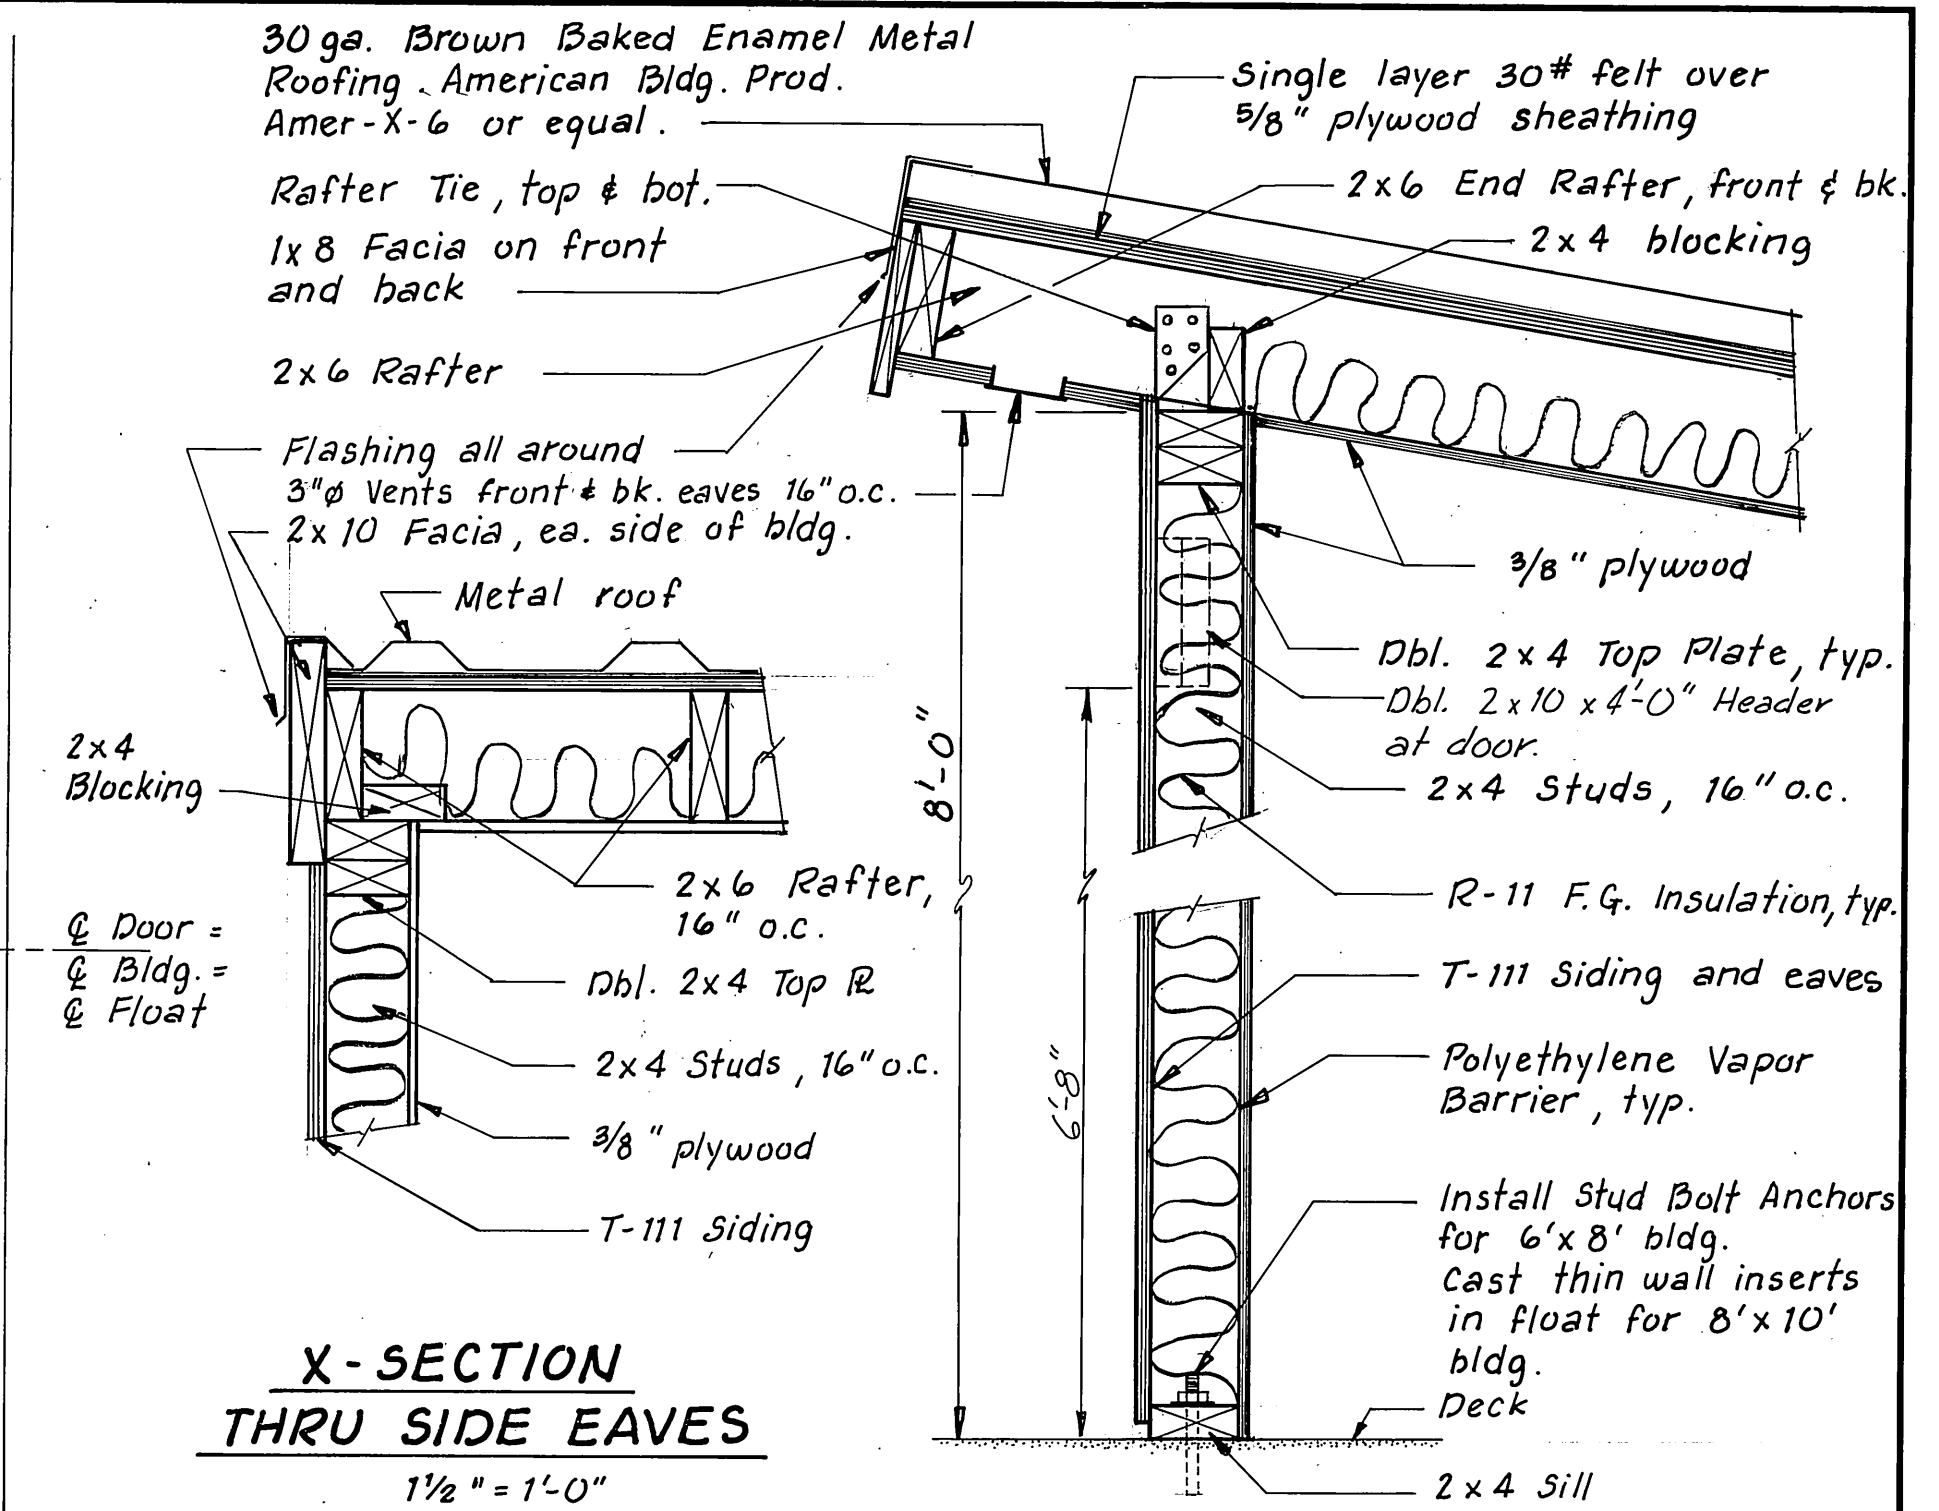 30 ga. Brown Baked Enamel Metal
Roofing. American Bldg. Prod.
Amer-X-6 or equal.
Rafter Tie, top & bot.
1x8 Facia on front
and back
2x6 Rafter
Flashing all around
3"ø Vents front & bk. eaves 16" o.c.
2x10 Facia, ea. side of bldg.
Metal roof
2x4
Blocking
2x6 Rafter,
16" o.c.
℄ Door =
℄ Bldg. =
℄ Float
Dbl. 2x4 Top ⅊
2x4 Studs, 16" o.c.
3/8" plywood
T-111 Siding
X-SECTION
THRU SIDE EAVES
1½" = 1'-0"
Single layer 30# felt over
5/8" plywood sheathing
2x6 End Rafter, front & bk.
2x4 blocking
3/8" plywood
Dbl. 2x4 Top Plate, typ.
Dbl. 2x10 x 4'-0" Header
at door.
2x4 Studs, 16" o.c.
8'-0"
6'-8"
R-11 F.G. Insulation, typ.
T-111 Siding and eaves
Polyethylene Vapor
Barrier, typ.
Install Stud Bolt Anchors
for 6'x8' bldg.
Cast thin wall inserts
in float for 8'x10'
bldg.
Deck
2x4 Sill